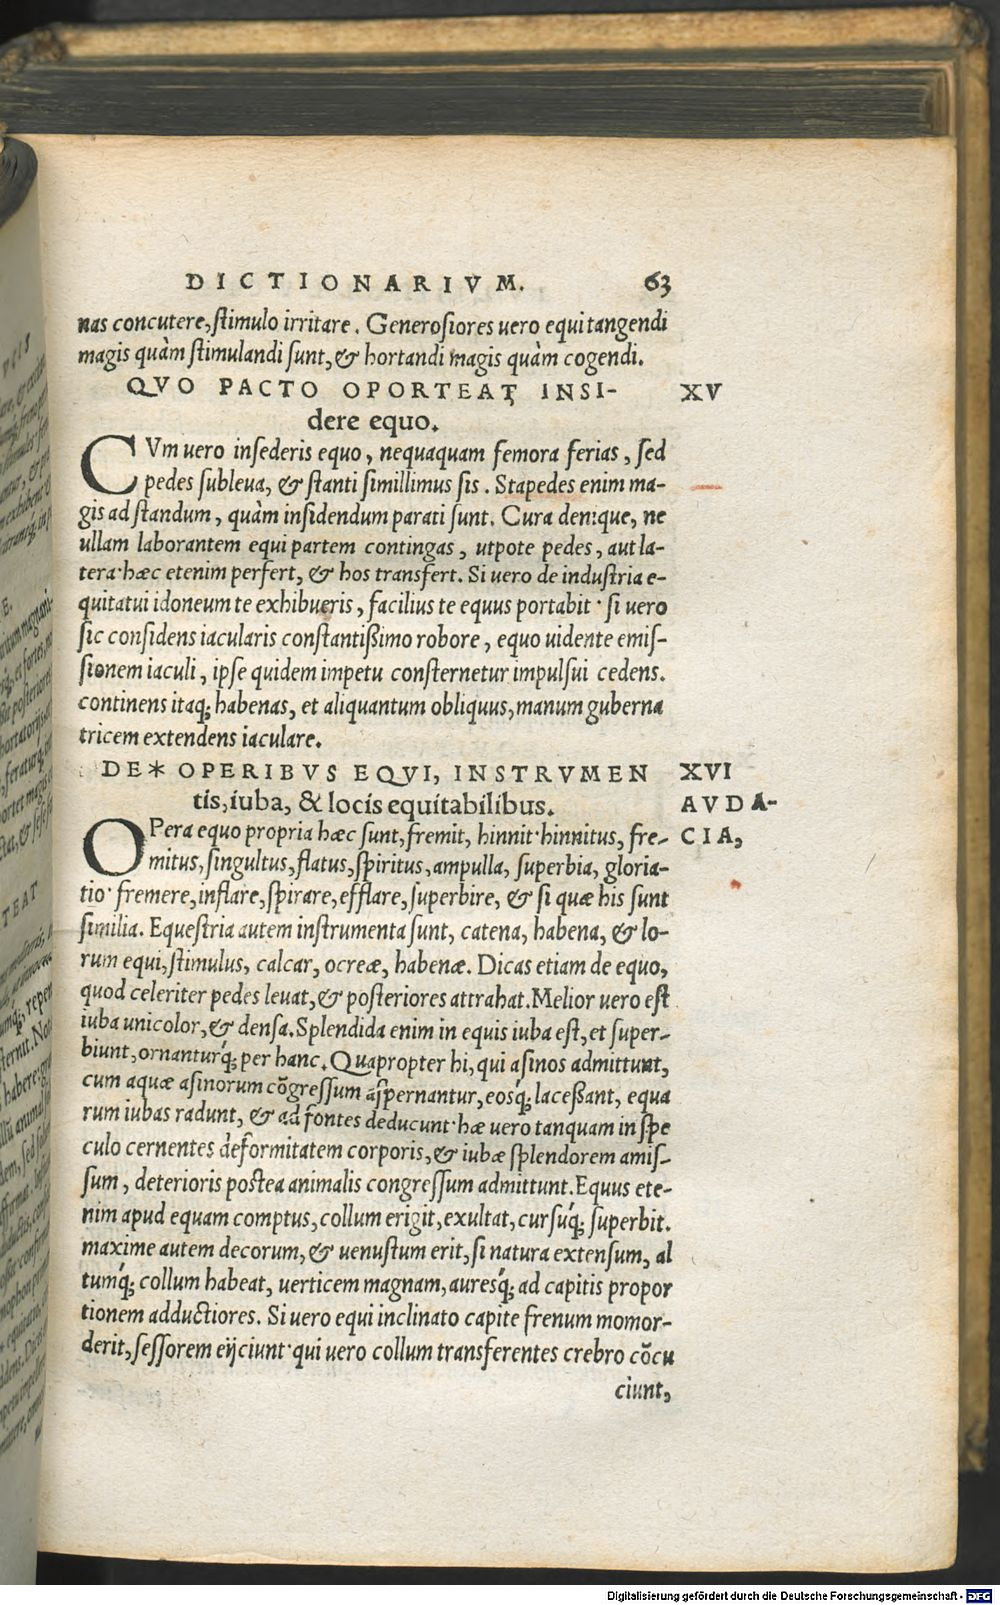 DICTIONARIVM. 63
nas concutere, stimulo irritare. Generosiores uero equi tangendi
magis quàm stimulandi sunt, & hortandi magis quàm cogendi.
QVO PACTO OPORTEAT INSI- XV
dere equo.
CVm uero insederis equo, nequaquam femora ferias, sed
pedes subleua, & stanti simillimus sis. Stapedes enim ma-
gis ad standum, quàm insidendum parati sunt. Cura denique, ne
ullam laborantem equi partem contingas, utpote pedes, aut la-
tera· hæc etenim perfert, & hos transfert. Si uero de industria e-
quitatui idoneum te exhibueris, facilius te equus portabit· si uero
sic considens iacularis constantißimo robore, equo uidente emis-
sionem iaculi, ipse quidem impetu consternetur impulsui cedens.
continens itaq; habenas, et aliquantum obliquus, manum guberna
tricem extendens iaculare.
DE* OPERIBVS EQVI, INSTRVMEN XVI
tis, iuba, & locis equitabilibus. AVDA-
OPera equo propria hæc sunt, fremit, hinnit· hinnitus, fre- CIA,
mitus, singultus, flatus, spiritus, ampulla, superbia, gloria-
tio· fremere, inflare, spirare, efflare, superbire, & si quæ his sunt
similia. Equestria autem instrumenta sunt, catena, habena, & lo-
rum equi, stimulus, calcar, ocreæ, habenæ. Dicas etiam de equo,
quod celeriter pedes leuat, & posteriores attrahat. Melior uero est
iuba unicolor, & densa. Splendida enim in equis iuba est, et super-
biunt, ornanturq́; per hanc. Quapropter hi, qui asinos admittunt,
cum aquæ asinorum cōgressum aspernantur, eosq́; laceßant, equa
rum iubas radunt, & ad fontes deducunt· hæ uero tanquam in spe
culo cernentes deformitatem corporis, & iubæ splendorem amis-
sum, deterioris postea animalis congressum admittunt. Equus ete-
nim apud equam comptus, collum erigit, exultat, cursuq́; superbit.
maxime autem decorum, & uenustum erit, si natura extensum, al
tumq́; collum habeat, uerticem magnam, auresq́; ad capitis propor
tionem adductiores. Si uero equi inclinato capite frenum momor-
derit, sessorem eijciunt· qui uero collum transferentes crebro cōcu
ciunt,
Digitalisierung gefördert durch die Deutsche Forschungsgemeinschaft - DFG